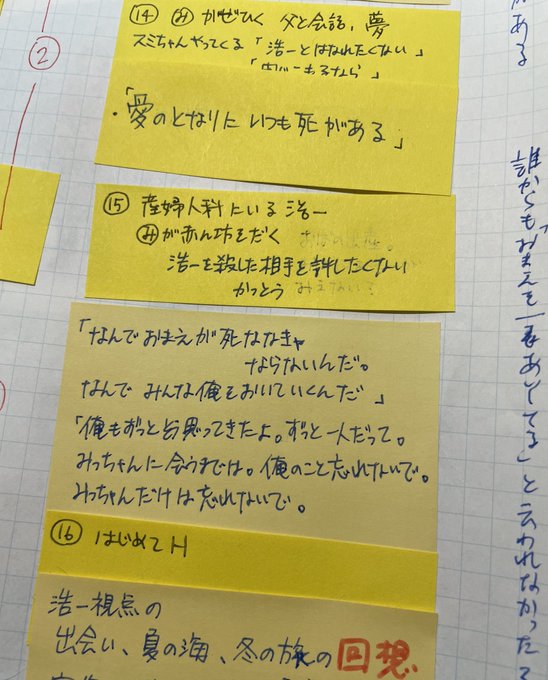 ②
⑭ み かぜひく 父と会話、夢
スミちゃんやってくる「浩一とはなれたくない」
・「愛のとなりに いつも死がある」
⑮ 産婦人科にいる浩一
みが赤ん坊をだく
浩一を殺した相手を許したくない
かっとう
「なんでおまえが死ななきゃ
ならないんだ。
なんでみんな俺をおいていくんだ」
「俺もずっと思ってきたよ。ずっと一人だって。
みっちゃんに会うまでは。俺のこと忘れないで。
みっちゃんだけは忘れないで。
⑯ はじめてH
浩一視点の
出会い、夏の海、冬の旅の回想
がある
誰からも「おまえを一番あいしてる」と云われなかった